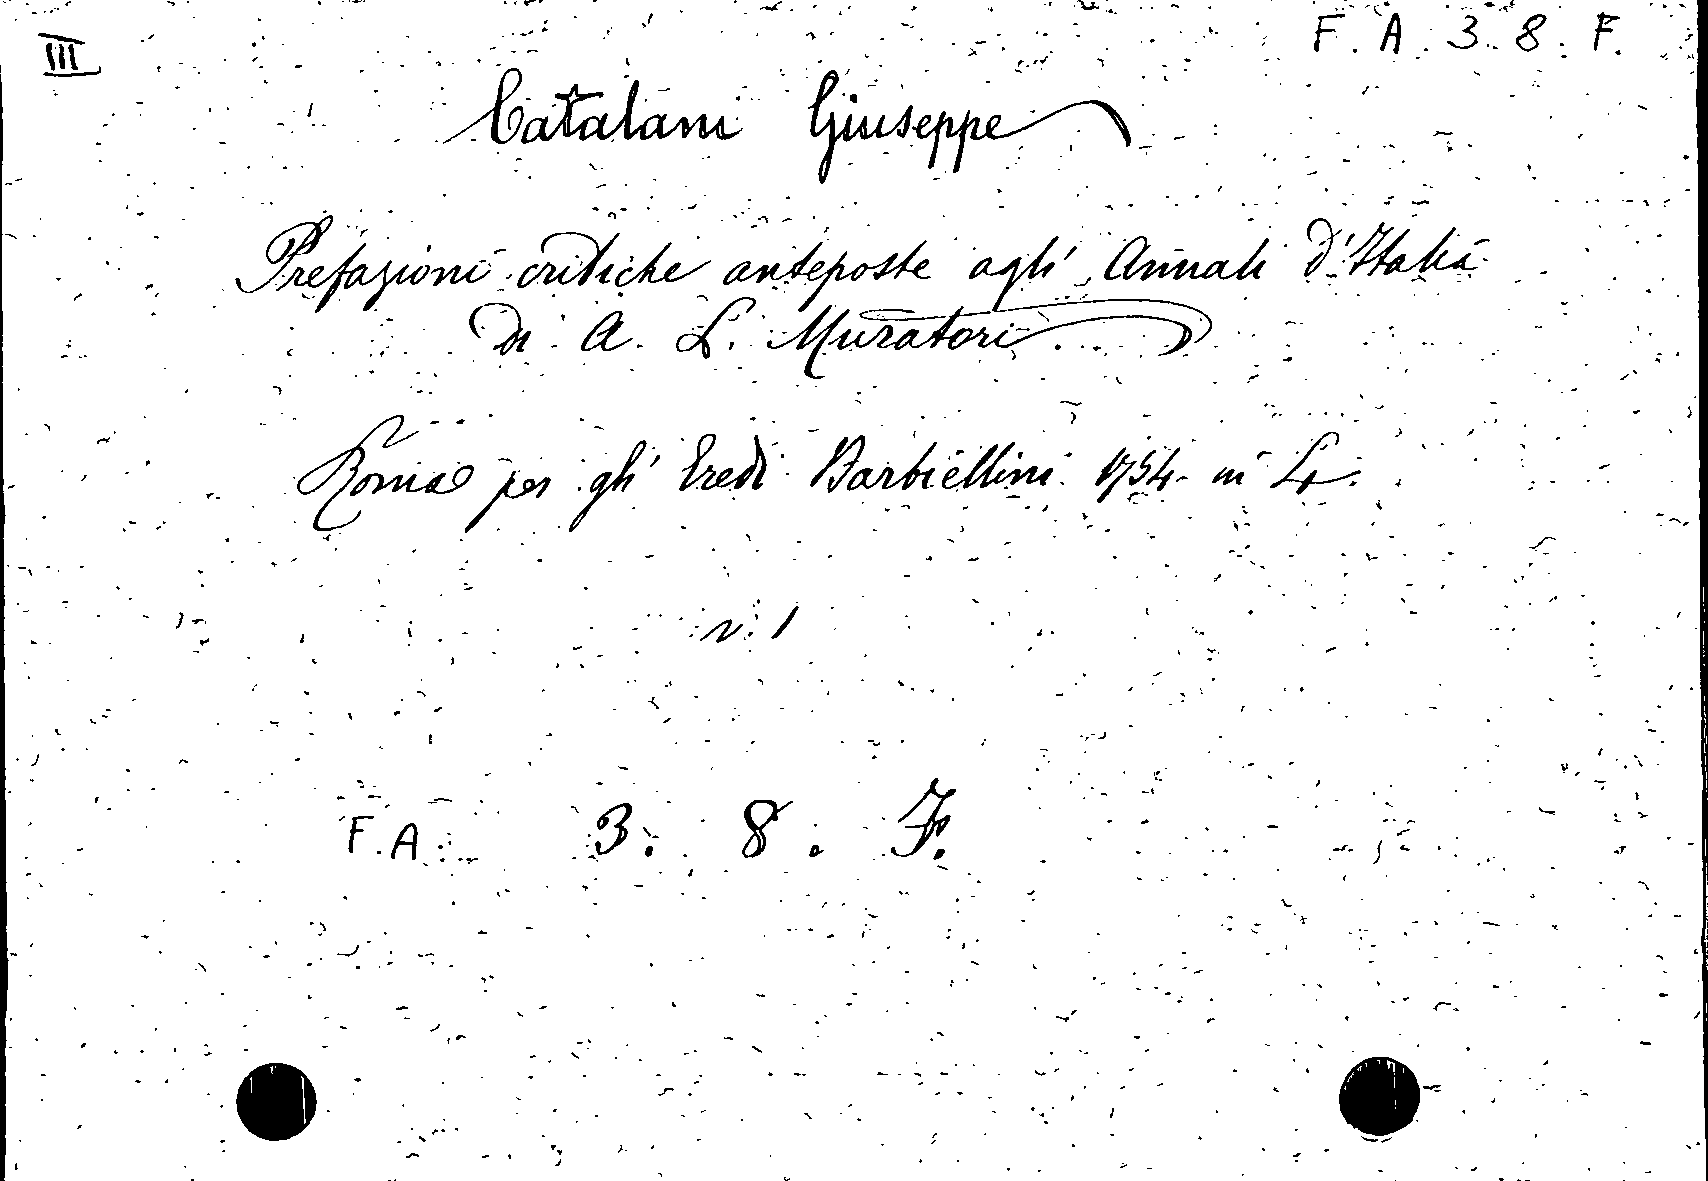 III
F. A. 3. 8. F.
Catalani Giuseppe
Prefazioni critiche anteposte agli Annali d'Italia
di A. L. Muratori
Roma per gli Eredi Barbiellini 1754 in 4.
v. 1
F. A. 3. 8. F.